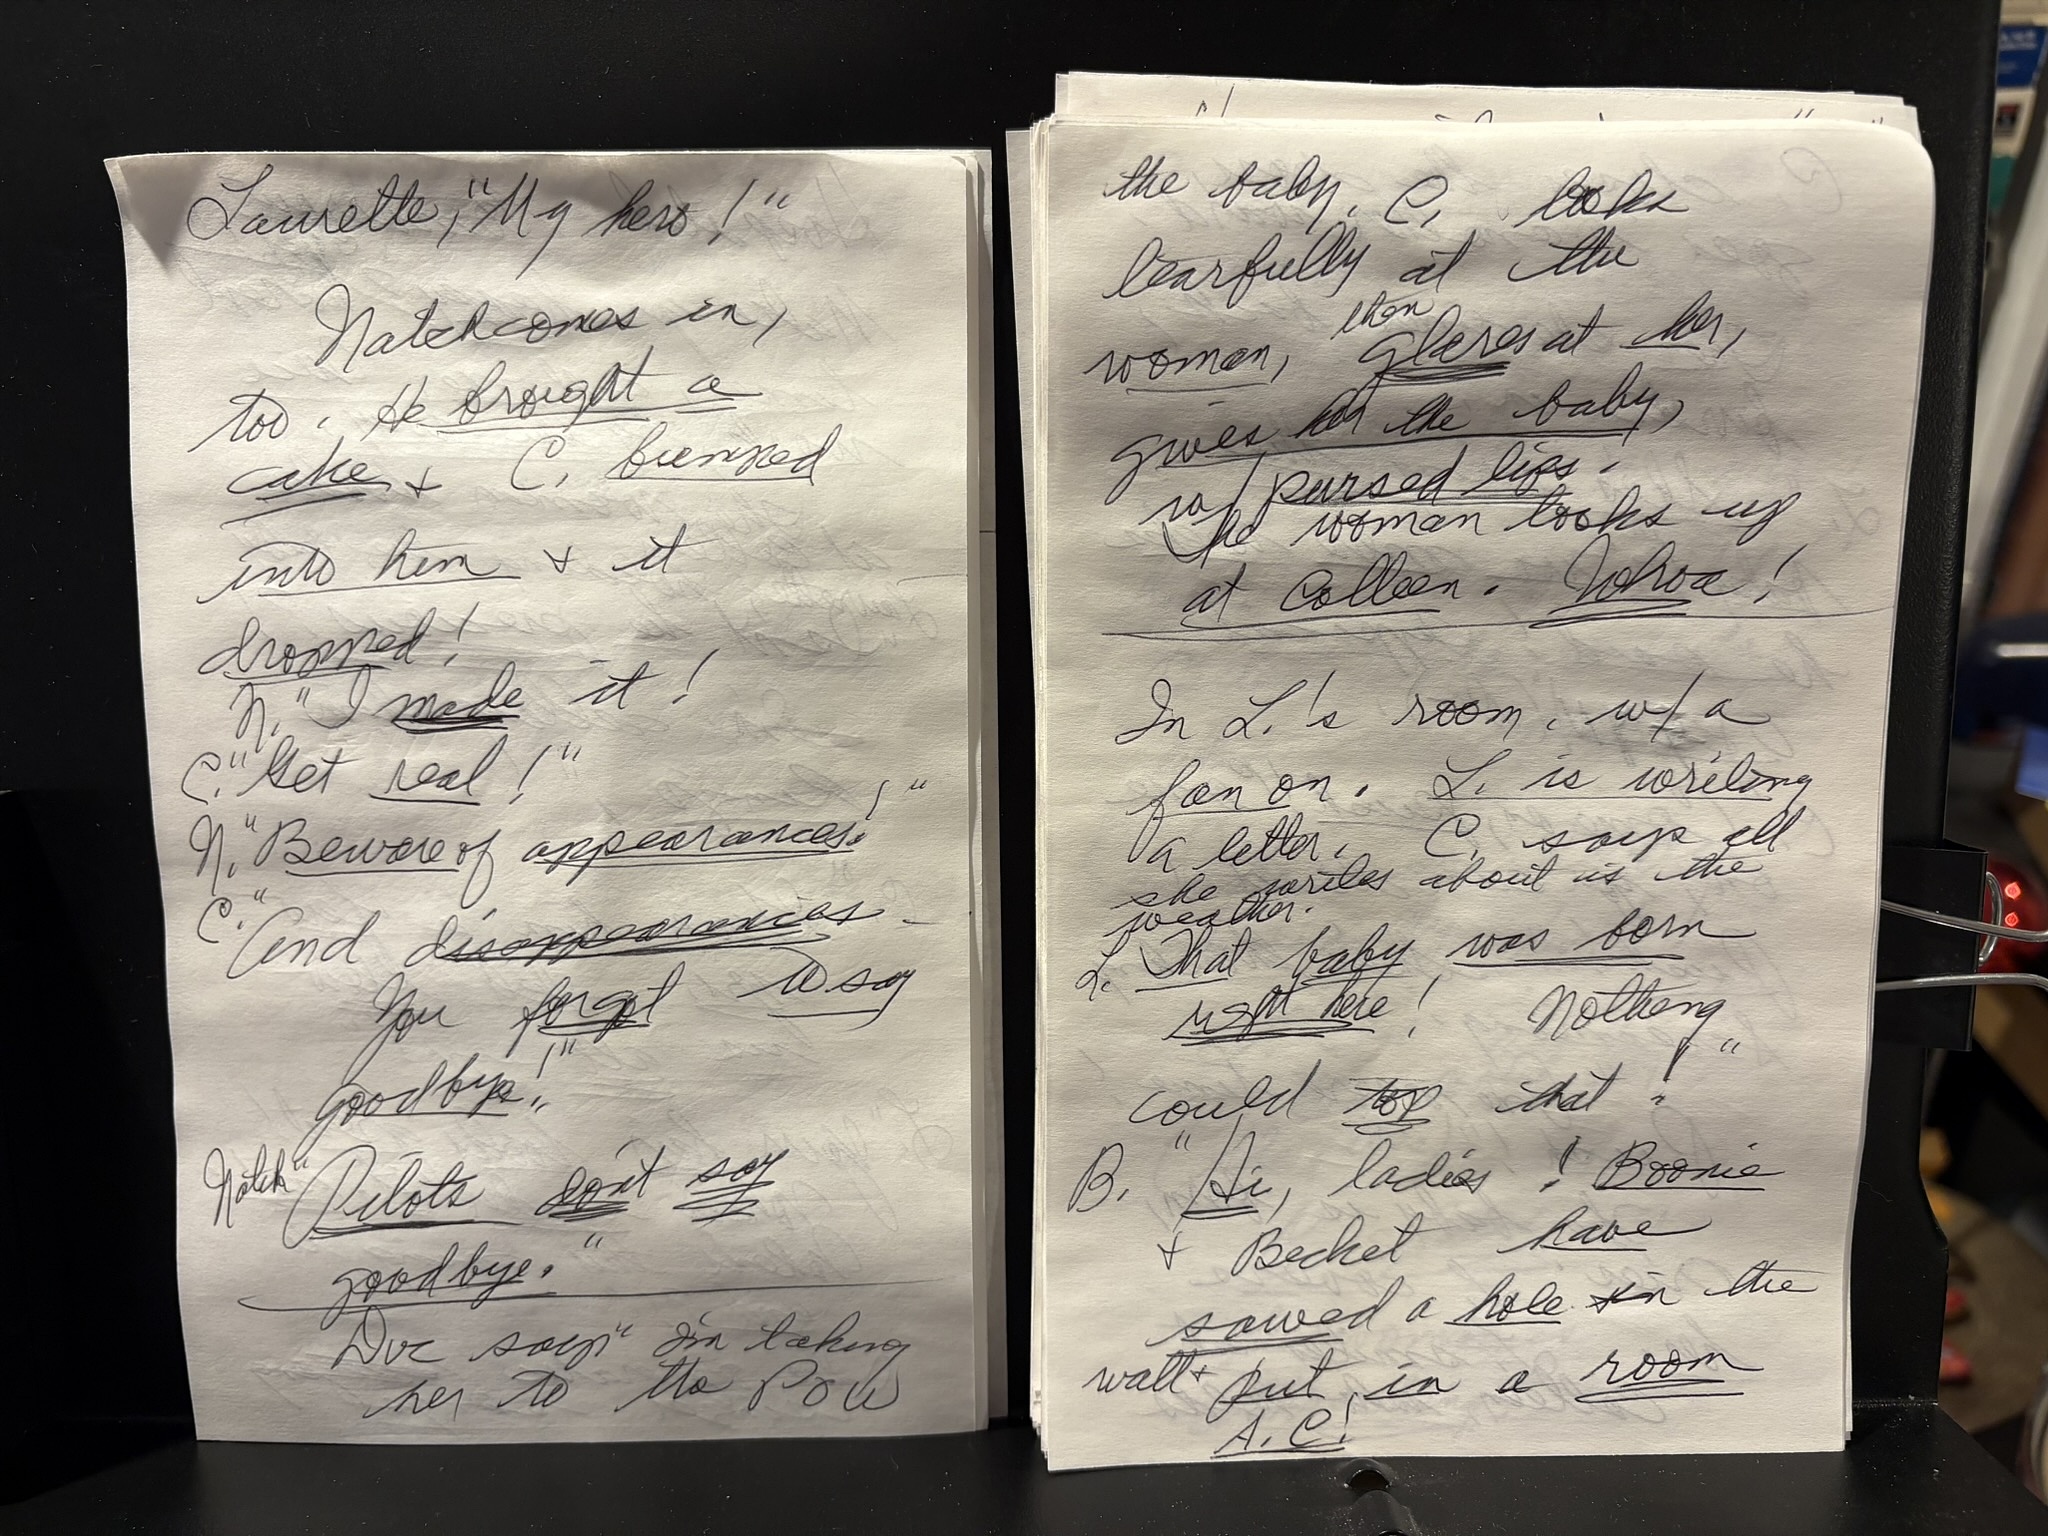 Laurette, "My hero!"
Natch comes in,
too. He brought a
cake & C. bumped
into him & it
dropped!
N. "I made it!
C. "Get real!"
N. "Beware of appearances!"
C. "And disappearances.
You forgot to say
goodbye!"
Natch "Pilots don't say
goodbye."
Doc says "I'm taking
her to the POW
the baby. C. looks
tearfully at the
woman, then glares at her,
gives her the baby,
w/ pursed lips.
The woman looks up
at Colleen. Whoa!
In L.'s room, w/ a
fan on. L. is writing
a letter. C. says all
she writes about is the
weather.
L. That baby was born
right here! Nothing
could top that!"
B. "Hi, ladies! Boonie
& Becket have
sawed a hole in the
wall & put in a room
A.C!